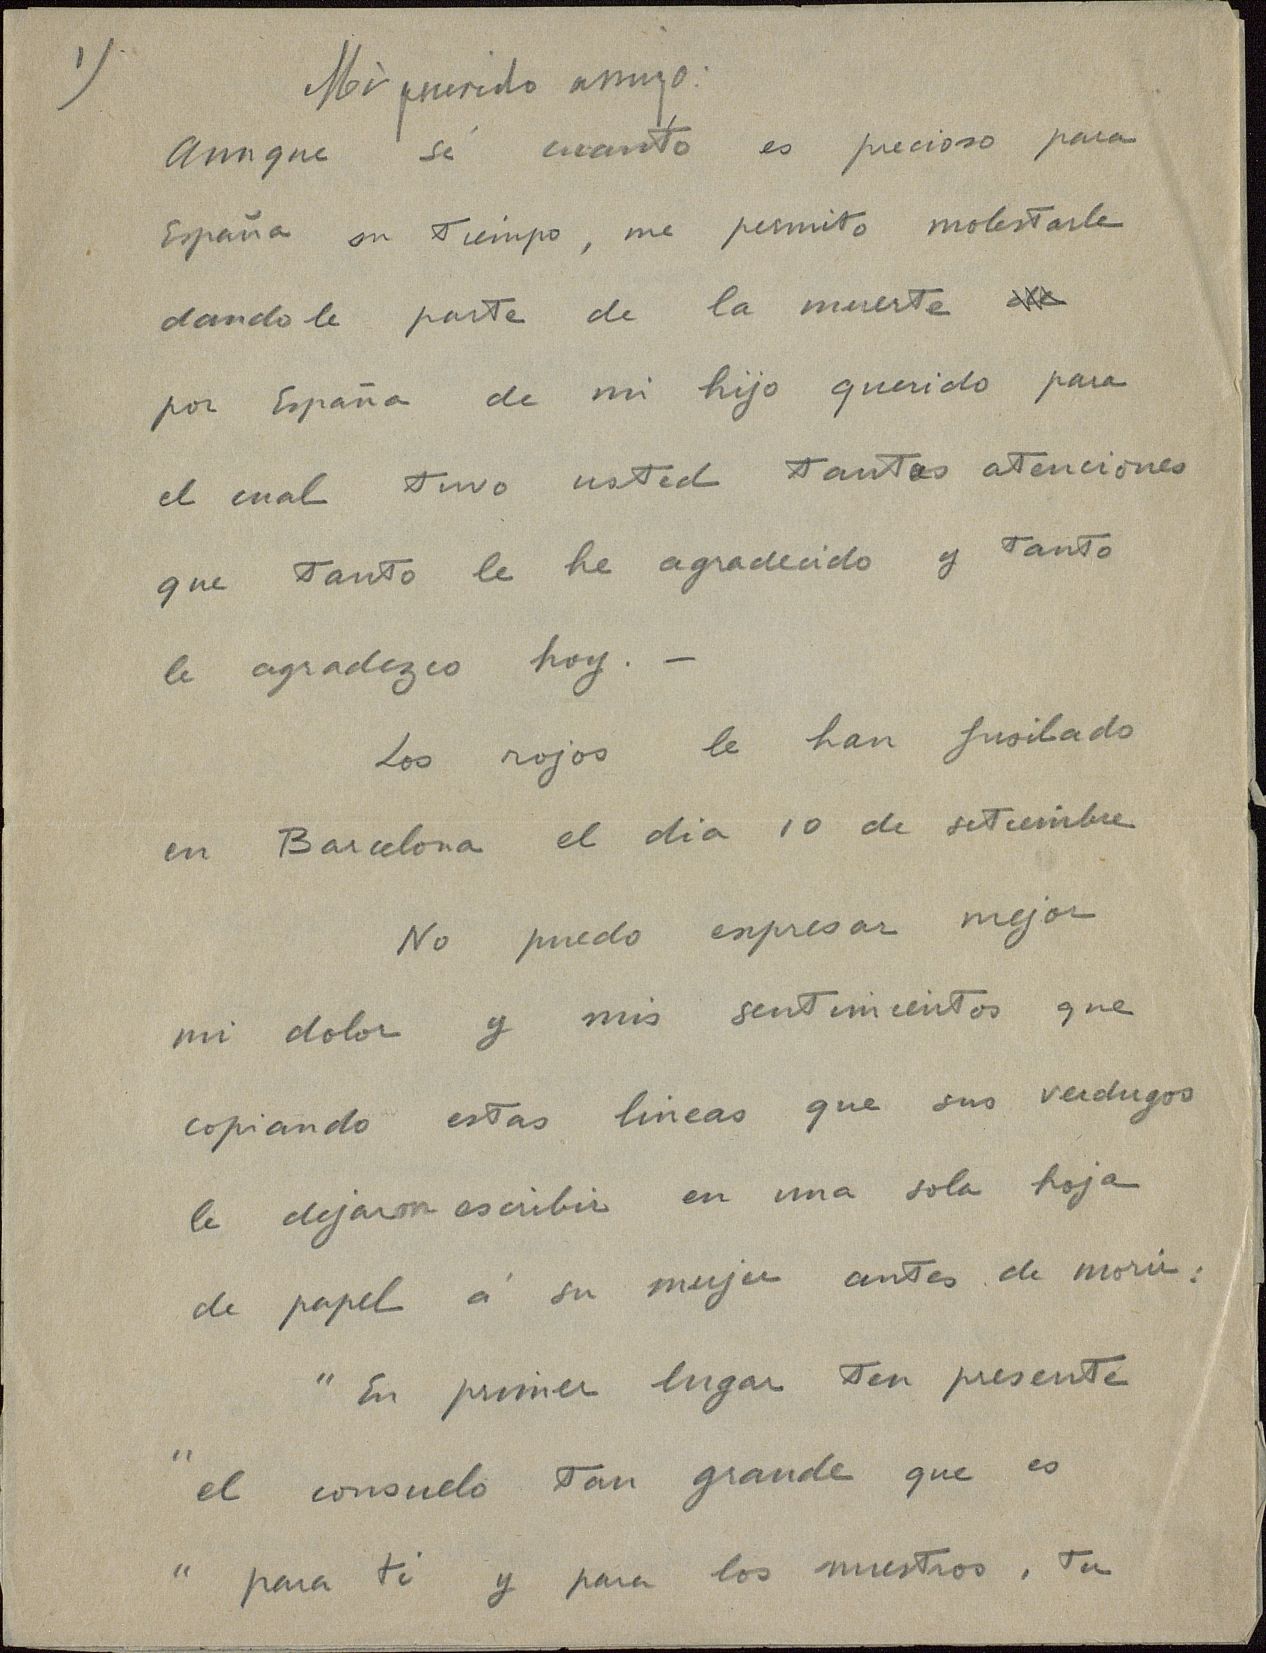 1)
Mi querido amigo:
Aunque sé cuanto es precioso para
España su tiempo, me permito molestarle
dandole parte de la muerte
por España de mi hijo querido para
el cual tuvo usted tantas atenciones
que tanto le he agradecido y tanto
le agradezco hoy. —
Los rojos le han fusilado
en Barcelona el dia 10 de setiembre
No puedo expresar mejor
mi dolor y mis sentimientos que
copiando estas lineas que sus verdugos
le dejaron escribir en una sola hoja
de papel á su mujer antes de morir:
" En primer lugar ten presente
" el consuelo tan grande que es
" para ti y para los nuestros, tu